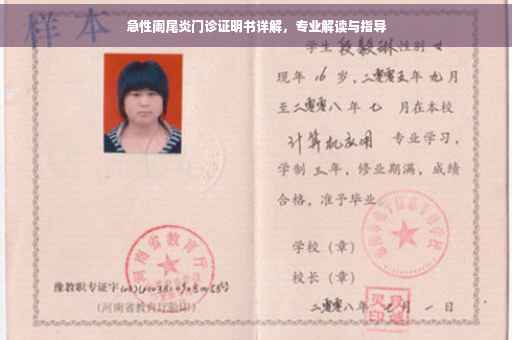 急性阑尾炎门诊证明书详解，专业解读与指导
样本
学生 段毅琳 性别 女
现年 16 岁，二零零五年 九 月
至二零零八 年 七 月在本校
计算机应用 专业学习，
学制 三 年，修业期满，成绩
合格，准予毕业。
学校（章）
校长（章）
二零零八年 七 月 一 日
河南省教育厅
豫教职专证字
（河南省教育厅验印）